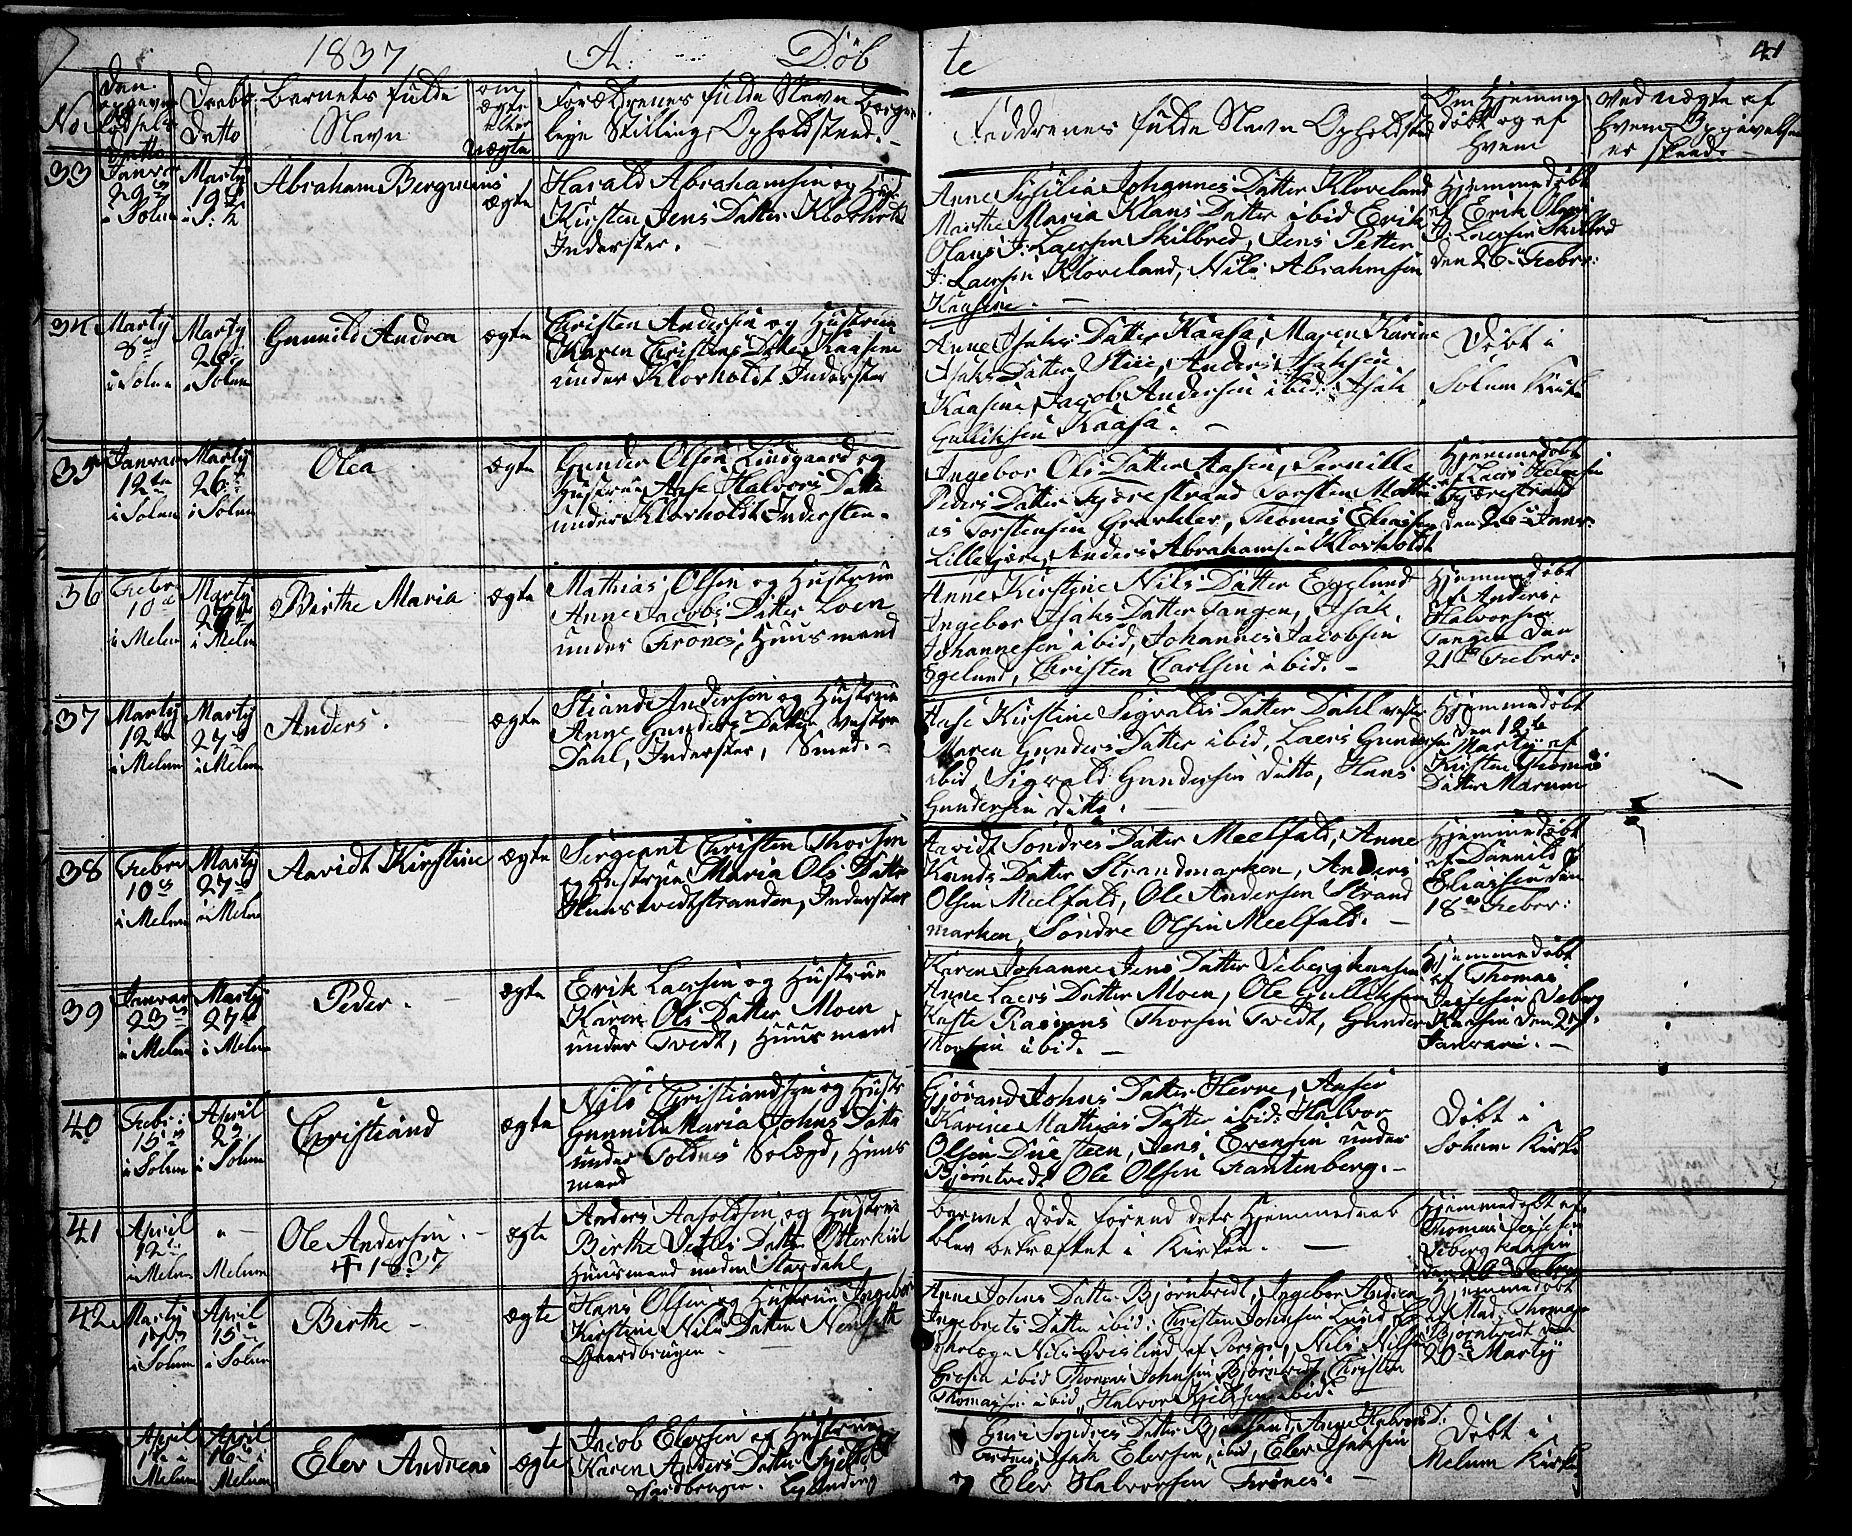 1837 A: Döb te
No
den opgevne födsels Datto
Doebs Datto
Barnets fulde Navn
om ægte eller uægte
Forældrenes fulde Navn borger
lige Stilling, Opholdsted.
Faddrenes fulde Navn Opholdsted
Om Hjemme
döbt og af
Hvem
Ved uægte af
hvem Opgivelsen
er skeed.
33
Janvr
29
i Solum
Marty
19
i S. K
Abraham Bergneius
ægte
Harald Abrahamsen og Hust
Kirsten Jens Datter Kloxholt
Inderster.
Anne Sisilia Johannes Datter Kloveland
Marthe Maria Klaus Datter ibid Erik
Olaus J: Laersen Skilbred, Jens Petter
J: Laersen Kloveland, Nils Abrahmsen
Kaasene. —
Hjemmedöbt
af Erik Olaus
J: Laersen Skilbred
den 26 Febvr:
34
Marty
8
i Solum
Marty
26
i Solum
Gunnild Andrea
ægte
Christen Andersen og Hustrue
Karen Christens Datter Kaasene
under Klovholdt Inderster
Anne Isaks Datter Kaasa, Maren Karine
Isaks Datter Stue, Anders Isaksen
Kaasene, Jacob Andersen ibid: Isak
Gulliksen Kaasa. —
Döbt i
Solum Kirke
35
Janvar
12te
i Solum
Marty
26
i Solum
Olea
ægte
Gunder Olsen Lindgaard og
Hustrue Aase Halvors Datter
under Klovholdt Indersten.
Ingebor Ols Datter Aasen, Pernille
Peders Datter Fjærestrand Torsten Mathi
as Torstensen Graver, Thomas Eliassen
Lillegjere, Anders Abrahamsen Klovholdt
Hjemmedöbt
af Laers
Fjærestrand
den 26 Janr:
36
Febvr
10
i Melum
Marty
27
i Melum
Birthe Maria
ægte
Mathias Olsen og Hustrue
Anne Jacobs Datter Loen
under Frones, Huusmand
Anne Kirstine Nils Datter Egelund
Ingebor Isaks Datter Tangen, Isak
Johannesen ibid, Johannes Jacobsen
Egelund, Christen Carlsen ibid. —
Hjemmedöbt
af Anders
Halvorsen
Tangen den
21de Febvr:
37
Marty
12te
i Melum
Marty
27
i Melum
Anders.
ægte
Stiand Andersen og Hustrue
Anne Gunders Datter Vestre
Dahl, Inderster, Smed. —
Aase Kirstine Sigvalds Datter Dahl vestre
Maren Gunders Datter ibid, Laers Gundersen
ibid, Sigvald Gundersen ditto, Hans
Gundersen ditto. —
Hjemmedöbt
den 12te
Marty af
Kirsten Thomas
Datter Marum
38
Febvr
10
i Melum
Marty
27
i Melum
Aavidt Kirstine
ægte
Sergeant Christen Thorsen
og Hustrue Maria Ols Datter
Huustvedtstranden, Inderster
Aavidt Söndres Datter Meelfald, Anne
Knuds Datter Strandmarken, Anders
Olsen Meelfald, Ole Andersen Strand
marken, Söndre Olsen Meelfald. —
Hjemmedöbt
af Dannild
Eliassen den
18 Febvr:
39
Janvar
23
i Melum
Marty
27
i Melum
Peder. —
ægte
Erik Laersen og Hustrue
Karen Ols Datter Moen
under Tvedt, Huusmand
Karen Johanne Jens Datter Vibergkaasen
Anne Laers Datter Moen, Ole Gulliksen
Kaste Rasmus Thorsen Tvedt, Gunder
Thorsen ibid. —
Hjemmedöbt
af Thomas
Jossesen Viberg
Kaasen den 27
Janvari. —
40
Febr:
15
i Solum
April
2
i Solum
Christiand
ægte
Nils Christiandsen og Hustr
Gunnild Maria Johns Datter
under Toldnes Solægd, Huus
mand
Gjörand Johns Datter Herre, Anser
Karine Mathias Datter ibid: Halvor
Olsen Duesteen, Jens Evensen under
Bjørntvedt, Ole Olsen Fantenberg. —
Döbt i
Solum Kirke
41
April
12
i Melum
" —
Melum
Ole Andersen. —
✝ 1837
ægte
Anders Aasoldsen og Hustrue
Birthe Vetles Datter Otterkiil
Huusmand under Skardahl
Barnet döde förend dets Hjemmedaab
blev bekræftet i Kirken. —
Hjemmedöbt af
Thomas Jossesen
Vibergkaasen
42
Marty
17
i Solum
April
15
i Solum
Birthe —
ægte
Hans Olsen og Hustrue Ingebor
Kirstine Nils Datter
Gaardbruger —
Anne Johns Datter Bjørntvedt, Ingebor Andrea
Ingebrets Datter ibid: Christen Johnsen Lund,
Nils Nilsen
Grosen ibid Thomas Johnsen Bjørntvedt, Christen
Thomassen ibid, Halvor Kjeldsen ibid:
Hjemmedöbt
af Mad. Thomas
Bjørntvedt den
20 Marty
April
i
Melum
April
16 i
Melum
Elev Andreas
ægte
Jacob Elevsen og Hustrue
Karen Anders Datter
Gaardbruger.
Guri Sondres Datter, Anne Halvors D.
Isak Elevsen, ibid, Elev Isaksen
Elev Halvorsen Frönes. —
Döbt i
Melum Kirke